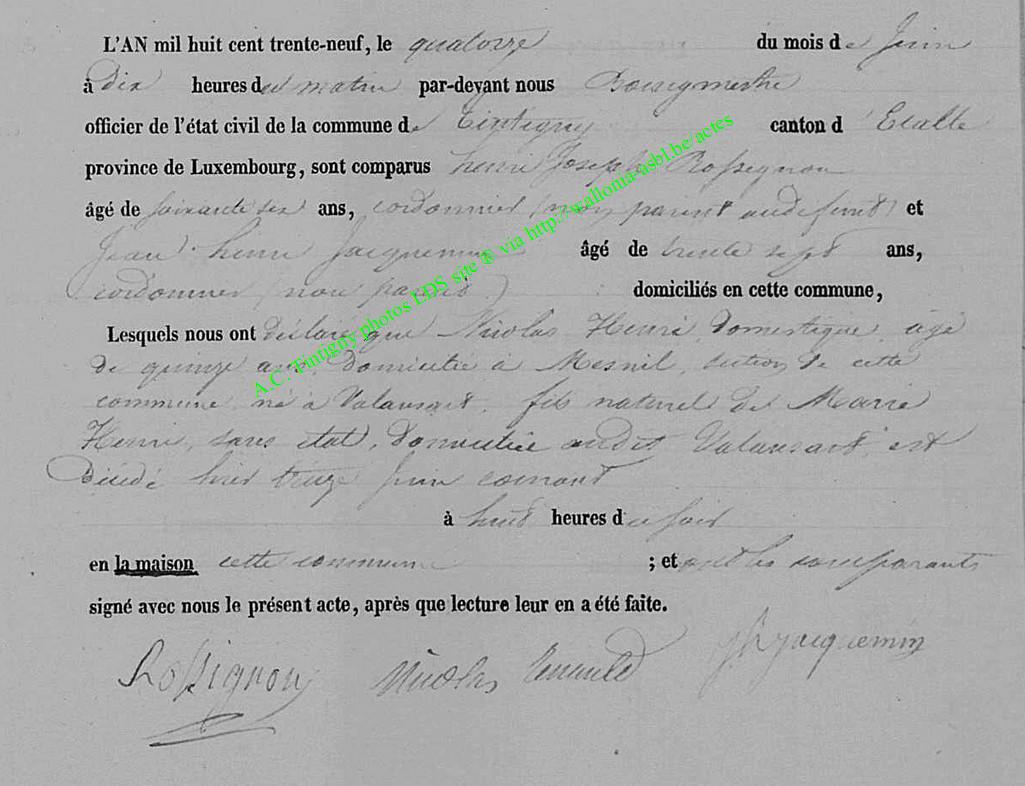 L'AN mil huit cent trente-neuf, le quatorze du mois de Juin
à Dix heures du matin par-devant nous Bourgmestre
officier de l'état civil de la commune de Tintigny canton d'Etalle
province de Luxembourg, sont comparus henri Joseph Rossignon
âgé de soixante six ans, cordonnier (non parent au defunt) et
Jean henri Jacquemin âgé de trente sept ans,
cordonnier (non parent) domiciliés en cette commune,
Lesquels nous ont déclaré que Nicolas Henri, domestique, agé
de quinze ans, domicilié à Mesnil, section de cette
commune, né à Valansart, fils naturel de Marie
Henri, sans état, domiciliée audit Valansart, est
décédé hier treize Juin courant
à huit heures du soir
en la maison cette commune ; et ont les comparants
signé avec nous le présent acte, après que lecture leur en a été faite.
Rossignon Nicolas JhJacquemin
A.C. Tintigny photos LDS site ® via http://wallonia-asbl.be/actes